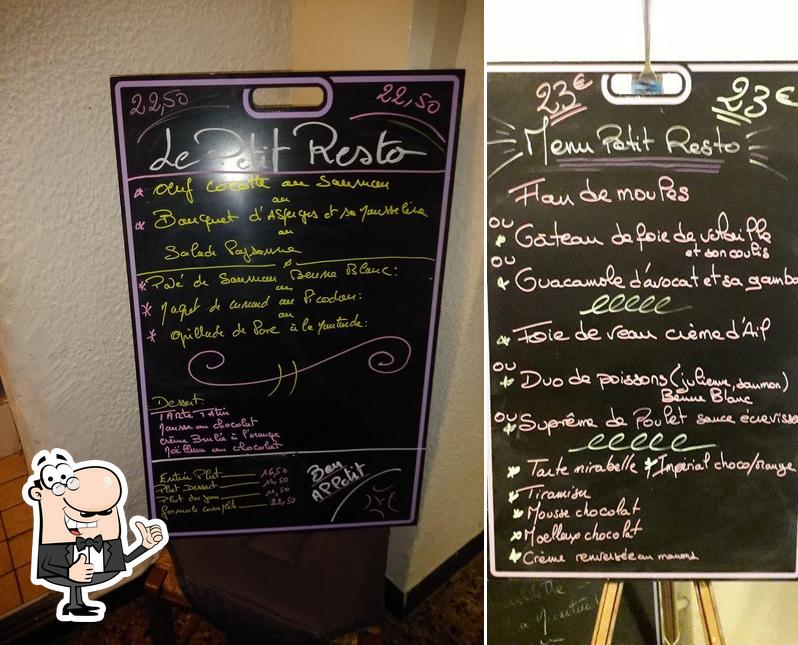 22,50 22,50
Le Petit Resto
* Oeuf cocotte au Saumon
ou
* Bouquet d'Asperges et sa Mousseline
ou
Salade Paysanne
* Pavé de Saumon Beurre Blanc:
ou
* Magret de canard au Picodon:
ou
* Grillade de Porc à la Moutarde:
Dessert:
TArte Tatin
Mousse au chocolat
Crème Brulée à l'orange
Moëlleux au chocolat
Entrée Plat 16,50
Plat Dessert 14,50
Plat du jour 11,50
formule complète 22,50
Bon
APPetit
23€ 23€
Menu Petit Resto
Flan de moules
OU
* Gâteau de foie de volaille
et son coulis
OU
* Guacamole d'avocat et sa gamba
* Foie de veau crème d'Ail
OU
* Duo de poissons (julienne, saumon)
Beurre Blanc
OU
* Suprême de Poulet sauce écrevisse
* Tarte mirabelle * Imperial choco/orange
* Tiramisu
* Mousse chocolat
* Moelleux chocolat
* Crème renversée au